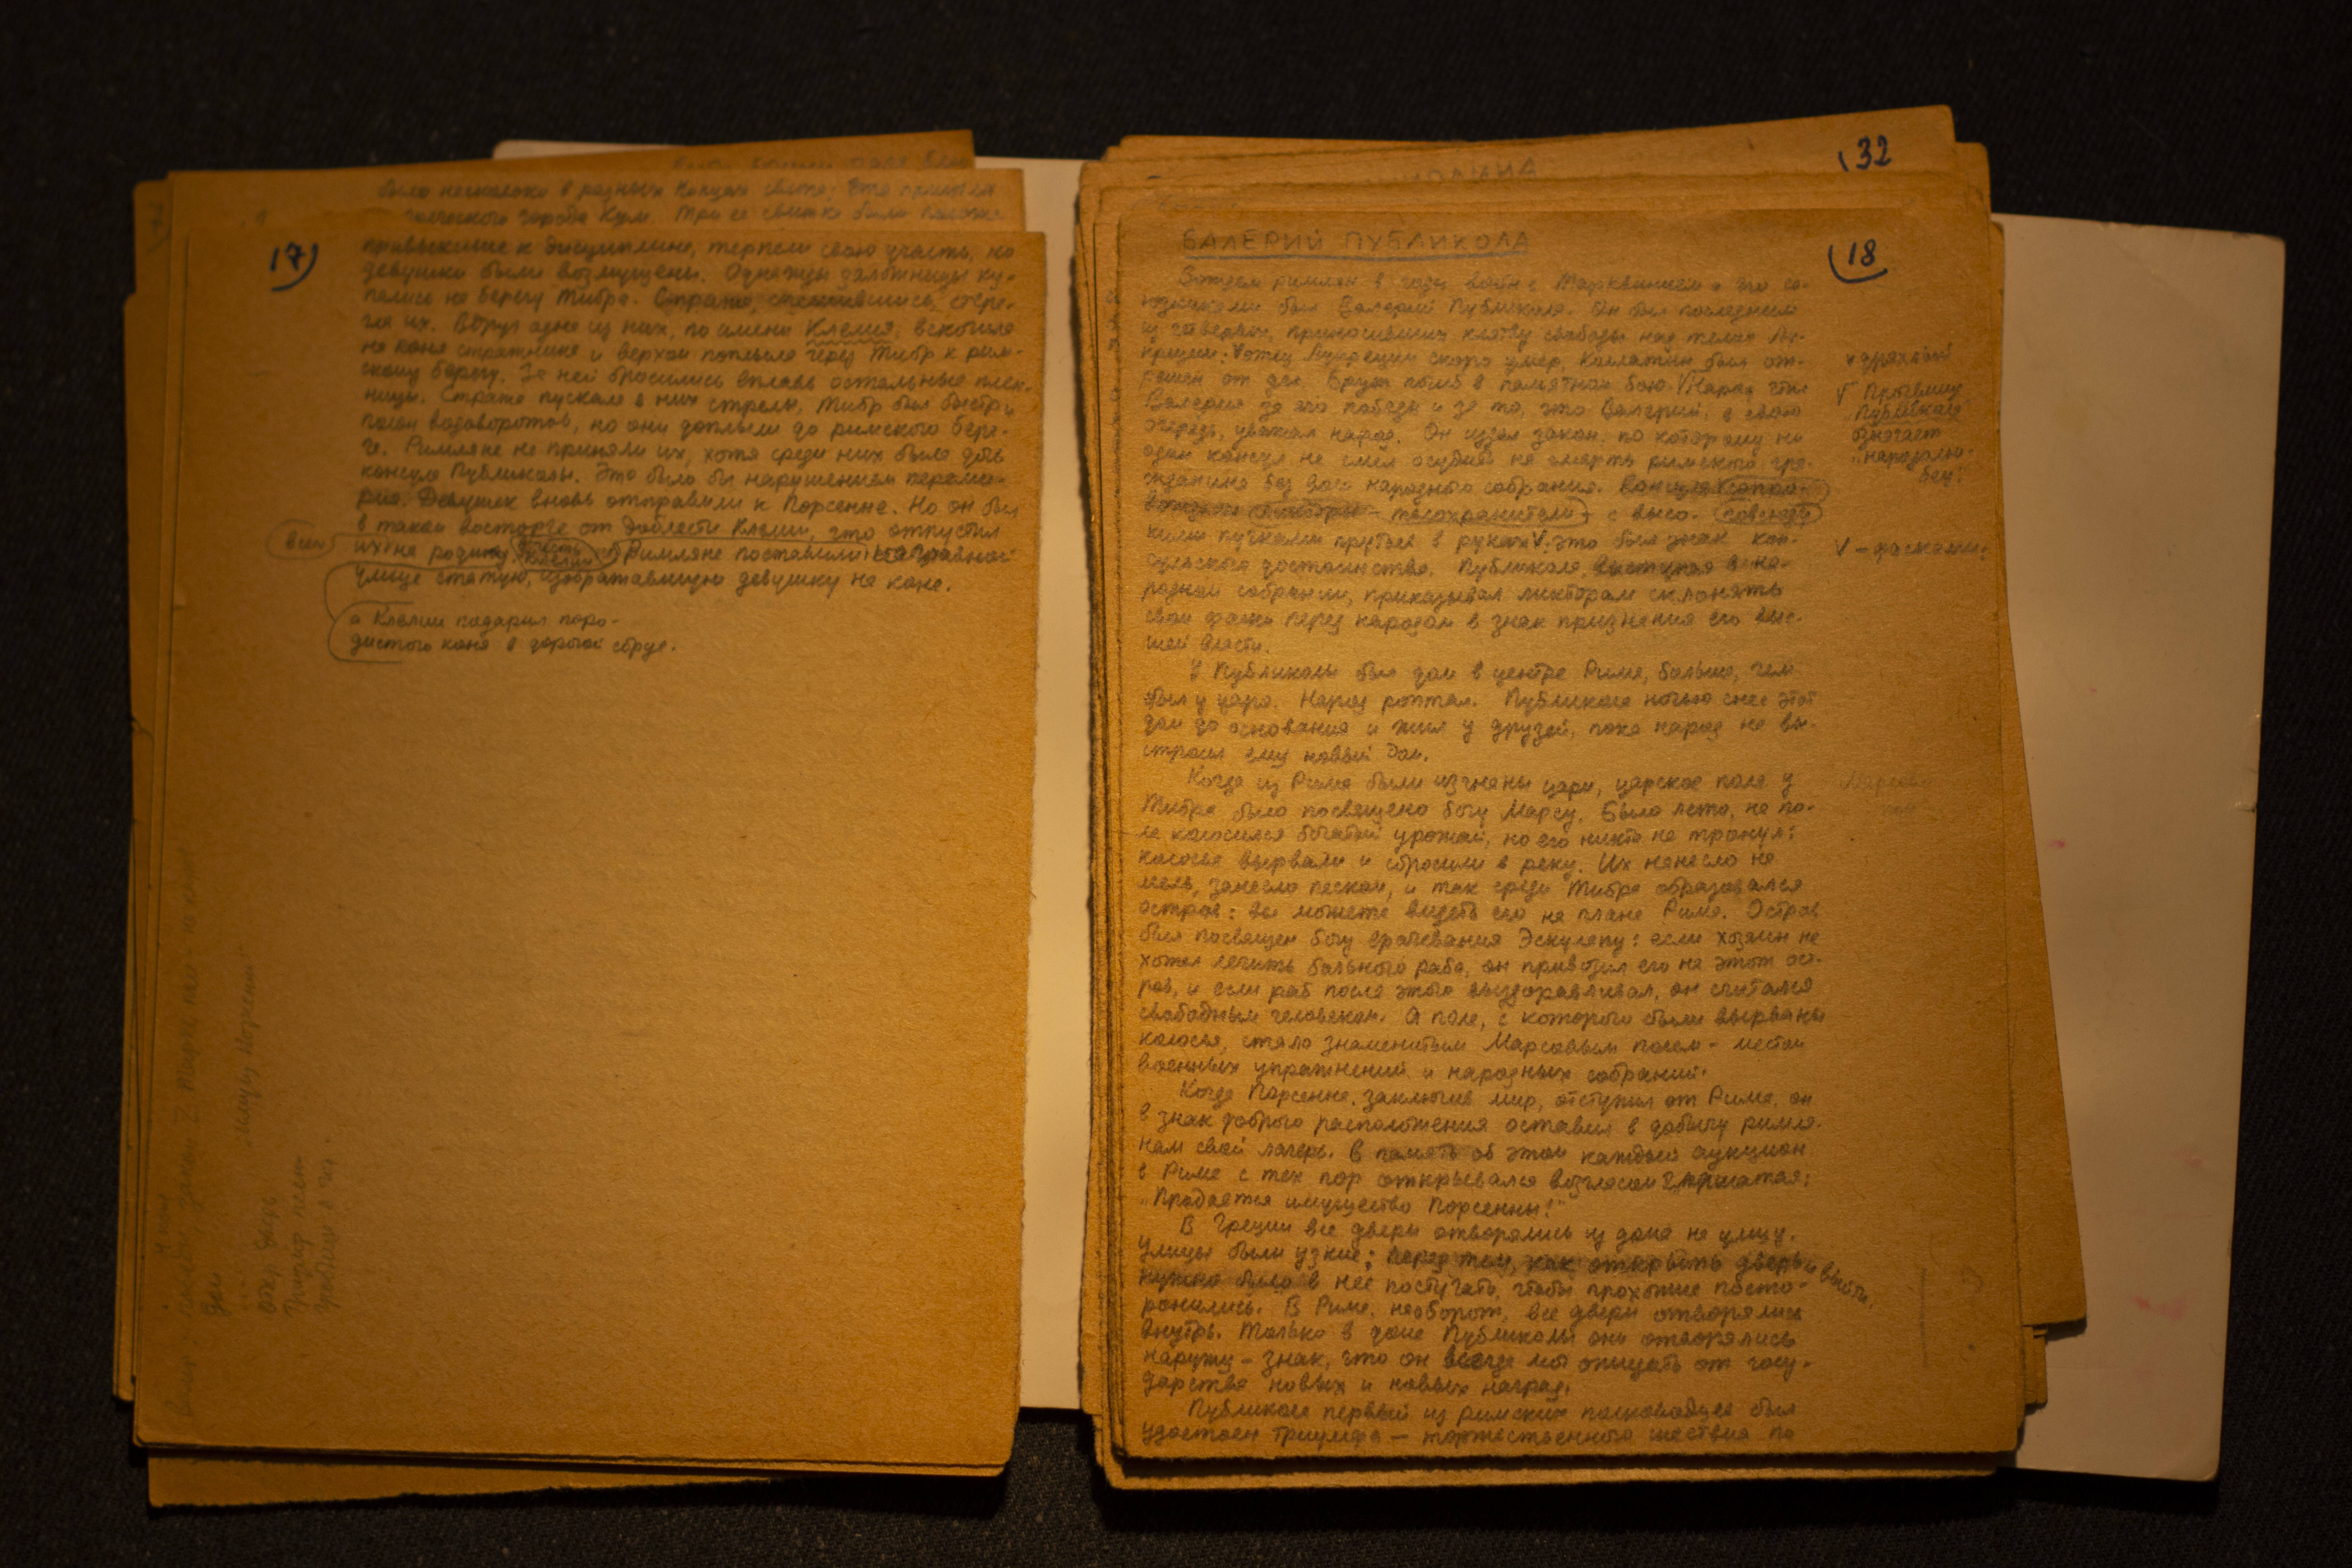 было несколько в разных концах света.
города Кум. Три ее свитка были
17)
привыкшие к дисциплине, терпели свою участь, но
девушки были возмущены. Однажды заложницы ку-
пались на берегу Тибра. Стража, спешившись, стере-
гла их. Вдруг одна из них, по имени Клелия, вскочила
на коня стражника и верхом поплыла через Тибр к рим-
скому берегу. За ней бросились вплавь остальные плен-
ницы. Стража пускала в них стрелы, Тибр был быстр и
полон водоворотов, но они доплыли до римского бере-
га. Римляне не приняли их, хотя среди них была дочь
консула Публиколы. Это было бы нарушением переми-
рия. Девушек вновь отправили к Порсенне. Но он был
в таком восторге от доблести Клелии, что отпустил
всех
их на родину. В честь Клелии Римляне поставили на главной
улице статую, изображавшую девушку на коне.
а Клелии подарил поро-
дистого коня в дорогой сбруе.
32
18
ВАЛЕРИЙ ПУБЛИКОЛА
Вождем римлян в годы войн с Тарквинием и его со-
юзниками был Валерий Публикола. Он был последним
из четверых, приносивших клятву свободы над телом Лу-
креции: отец Лукреции скоро умер, Коллатин был от-
решен от дел, Брут погиб в памятном бою. V Народ чтил
Валерия за его победы и за то, что Валерий, в свою
очередь, уважал народ. Он издал закон, по которому ни
один консул не смел осудить на смерть римского гра-
жданина без воли народного собрания. Консула сопро-
вождали ликторы - телохранители с высо- повсюду
кими пучками прутьев в руках V: это был знак кон-
сульского достоинства. Публикола, выступая в на-
родном собрании, приказывал ликторам склонять
свои фаски перед народом в знак признания его выс-
шей власти.
дряхлый
V Прозвище
"Публикола"
означает
"народолю-
бец".
V - фасками:
У Публиколы был дом в центре Рима, больше, чем
был у царя. Народ роптал. Публикола ночью снес этот
дом до основания и жил у друзей, пока народ не вы-
строил ему новый дом.
Когда из Рима были изгнаны цари, царское поле у
Тибра было посвящено богу Марсу. Было лето, на по-
ле колосился богатый урожай, но его никто не тронул:
колосья вырвали и сбросили в реку. Их нанесло на
мель, занесло песком, и так среди Тибра образовался
остров: вы можете видеть его на плане Рима. Остров
был посвящен богу врачевания Эскулапу: если хозяин не
хотел лечить больного раба, он привозил его на этот ост-
ров, и если раб после этого выздоравливал, он считался
свободным человеком. А поле, с которого были вырваны
колосья, стало знаменитым Марсовым полем - местом
военных упражнений и народных собраний.
Когда Порсенна, заключив мир, отступил от Рима, он
в знак доброго расположения оставил в добычу римля-
нам свой лагерь. В память об этом каждый аукцион
в Риме с тех пор открывался возгласом глашатая:
"Продается имущество Порсенны!"
В Греции все двери отворялись из дома на улицу.
Улицы были узкие; перед тем, как открыть дверь и выйти,
нужно было в нее постучать, чтобы прохожие посто-
ронились. В Риме, наоборот, все двери отворялись
внутрь. Только в доме Публиколы они отворялись
наружу - знак, что он всегда мог ожидать от госу-
дарства новых и новых наград.
Публикола первый из римских полководцев был
удостоен триумфа - торжественного шествия по